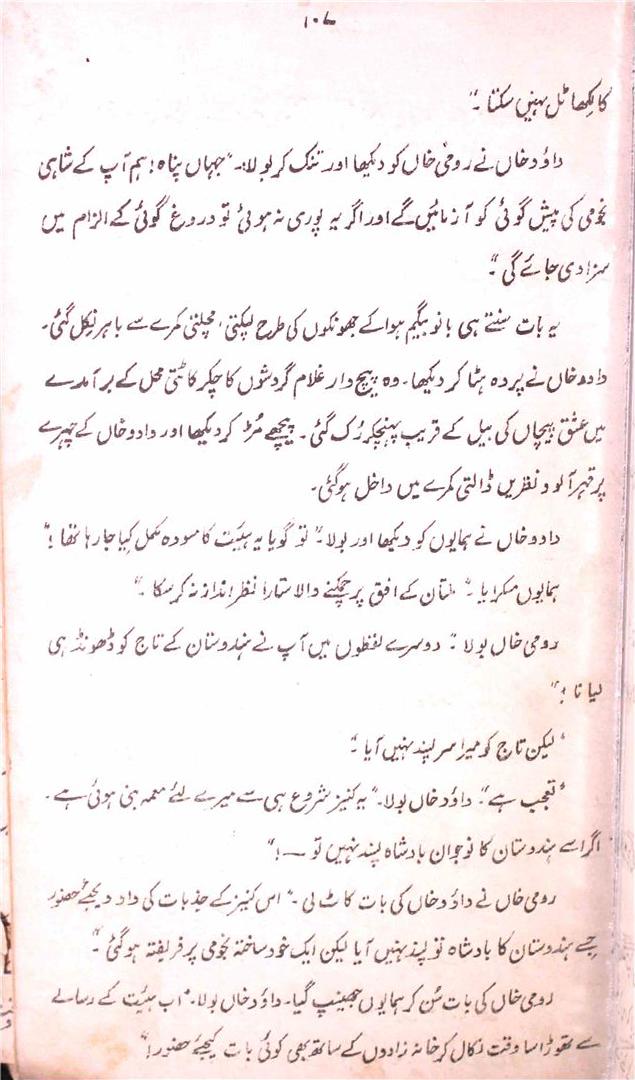 ۱۰۷
کا لکھا ٹل نہیں سکتا ۔"
داؤد خاں نے رومی خاں کو دیکھا اور تنک کر بولا:۔ "جہاں پناہ! ہم آپ کے شاہی
نجومی کی پیش گوئی کو آزمائیں گے اور اگر یہ پوری نہ ہوئی تو دروغ گوئی کے الزام میں
سزا دی جائے گی ۔"
یہ بات سنتے ہی بانو بیگم ہوا کے جھونکوں کی طرح لپکتی، مچلتی کمرے سے باہر نکل گئی۔
دادو خاں نے پردہ ہٹا کر دیکھا۔ وہ پیچ دار غلام گردشوں کا چکر کاٹتی محل کے برآمدے
میں عشق پیچاں کی بیل کے قریب پہنچکر رک گئی ۔ پیچھے مُڑ کر دیکھا اور دادو خاں کے چہرے
پر قہر آلود نظریں ڈالتی کمرے میں داخل ہو گئی۔
دادو خاں نے ہمایوں کو دیکھا اور بولا۔ "تو گویا یہ ہیئت کا مسودہ مکمل کیا جا رہا تھا!"
ہمایوں مسکرایا ۔ "ملتان کے افق پر چمکنے والا ستارا نظر انداز نہ کر سکا ۔"
رومی خاں بولا ۔ "دوسرے لفظوں میں آپ نے ہندوستان کے تاج کو ڈھونڈ ہی
لیا نا !"
"لیکن تاج کو میرا سر پسند نہیں آیا ۔"
"تعجب ہے"۔ داؤد خاں بولا۔ "یہ کنیز شروع ہی سے میرے لئے معمہ بنی ہوئی ہے ۔
اگر اسے ہندوستان کا نوجوان بادشاہ پسند نہیں تو ——!"
رومی خاں نے داؤد خاں کی بات کاٹ لی ۔ "اس کنیز کے جذبات کی داد دیجئے حضور
جسے ہندوستان کا بادشاہ تو پسند نہیں آیا لیکن ایک خود ساختہ نجومی پر فریفتہ ہو گئی ۔"
رومی خاں کی بات سُن کر ہمایوں جھینپ گیا۔ داؤد خاں بولا۔ "اب ہیئت کے رسالے
سے تھوڑا سا وقت نکال کر خانہ زادوں کے ساتھ بھی کوئی بات کیجئے حضور!"